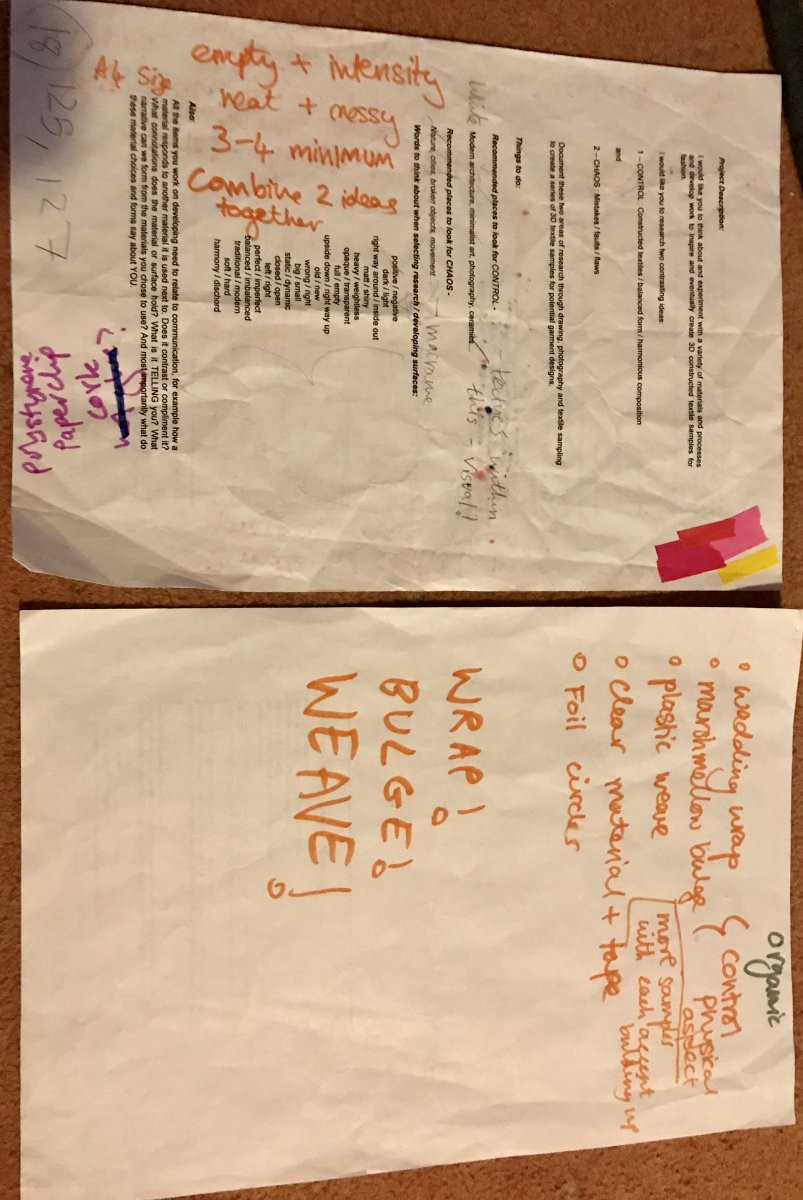 Project Description:
I would like you to think about and experiment with a variety of materials and processes
and develop work to inspire and eventually create 3D constructed textile samples for
fashion.
I would like you to research two contrasting ideas:
1 – CONTROL Constructed textiles / balanced form / harmonious composition
and
2 – CHAOS Mistakes / faults / flaws
Document these two areas of research through drawing, photography and textile sampling
to create a series of 3D textile samples for potential garment designs.
Things to do:
Recommended places to look for CONTROL -
- leaves within
White Modern architecture, minimalist art, photography, ceramics...
this - visual!
Recommended places to look for CHAOS -
Nature, cities, broken objects, movement
→ macrame
Words to think about when selecting research / developing surfaces:
positive / negative
dark / light
right way around / inside out
matt / shiny
heavy / weightless
opaque / transparent
full / empty
upside down / right way up
old / new
wrong / right
big / small
static / dynamic
closed / open
left / right
perfect / imperfect
balanced / imbalanced
traditional / modern
soft / hard
harmony / dischord
empty + intensity
neat + messy
3-4 minimum
Combine 2 ideas
together
Also:
A4 Size
All the items you work on developing need to relate to communication, for example how a
material responds to another material it is used next to. Does it contrast or compliment it?
What connotations does the material or surface hold? What is it TELLING you? What
narrative can we form from the materials you chose to use? And most importantly what do
these material choices and forms say about YOU
?
cork
paperclip
polystyrene
18, 125, 127
organic
○ wedding wrap
○ marshmellow bulge
} control
physical
aspect
○ plastic weave
more samples
with each accent
building up
○ clear material + tape
○ Foil circles
WRAP!
BULGE!
WEAVE!